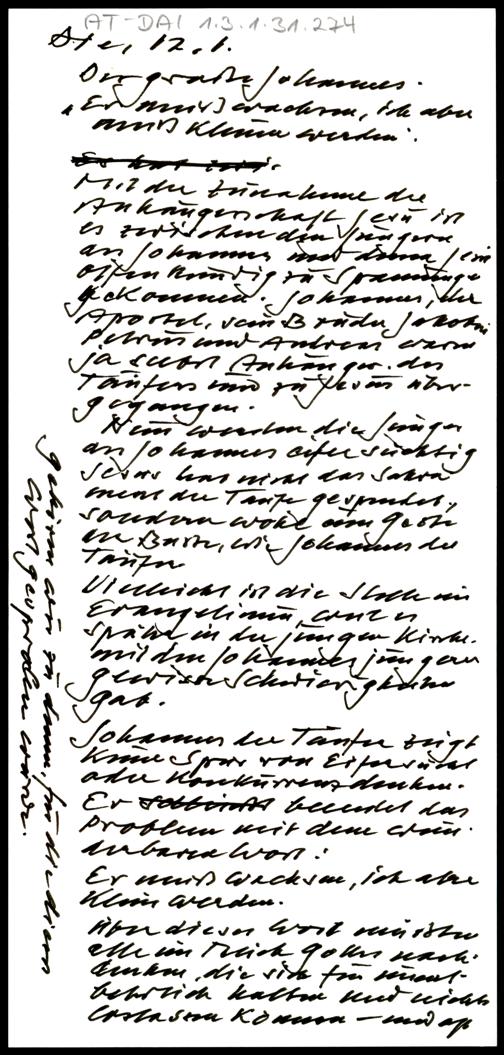 AT-DAI 1.3.1.31.274
12.1.
Der große Johannes.
"Er muß wachsen, ich aber
muß kleiner werden".
Es hat
Mit der Zunahme der
Anhängerschaft Jesu ist
es zwischen den Jüngern
des Johannes und denen Jesu
offenkundig zu Spannungen
gekommen. Johannes, der
Apostel, sein Bruder Jakobus
Petrus und Andreas waren
ja selbst Anhänger des
Täufers und zu Jesus über-
gegangen.
Nun werden die Jünger
des Johannes eifersüchtig
Jesus hat nicht das Sakra
ment der Taufe gespendet,
sondern wohl eine Geste
der Buße, wie Johannes der
Täufer
Vielleicht ist die Stelle im
Evangelium, weil es
später in der jungen Kirche
mit den Johannesjüngern
gewisse Schwierigkeiten
gab.
Johannes der Täufer zeigt
keine Spur von Eifersucht
oder Konkurrenzdenken.
Er beendet das
Problem mit dem wun-
derbaren Wort:
Er muß wachsen, ich aber
klein werden.
Über dieses Wort müßten
alle im Reich Gottes nach-
denken, die sich für unent-
behrlich halten und nichts
loslassen können – und
zu denen, für die dieses
Wort gesprochen wurde.